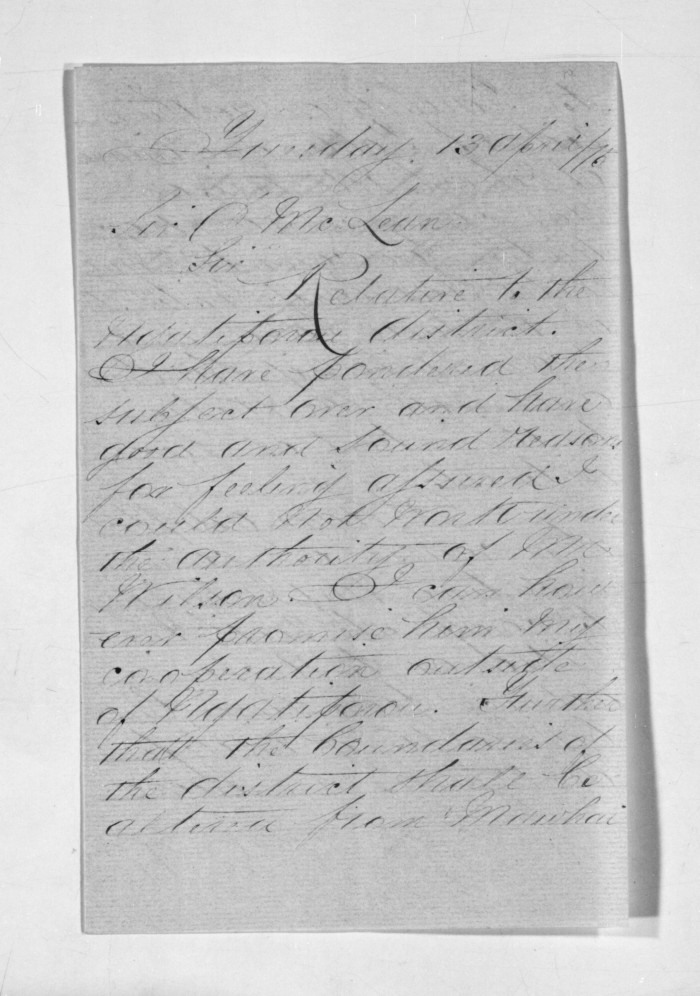 Tuesday 13 April/75
Sir D McLean
Sir
Relative to the
Ngatiporou district.
I have pondered the
subject over and have
good and sound reasons
for feeling assured I
could not work under
the authority of Mr
Wilson. I can how
ever promise him my
cooperation outside
of Ngatiporou. Further
that the boundaries of
the district shall be
altered from Mawhai